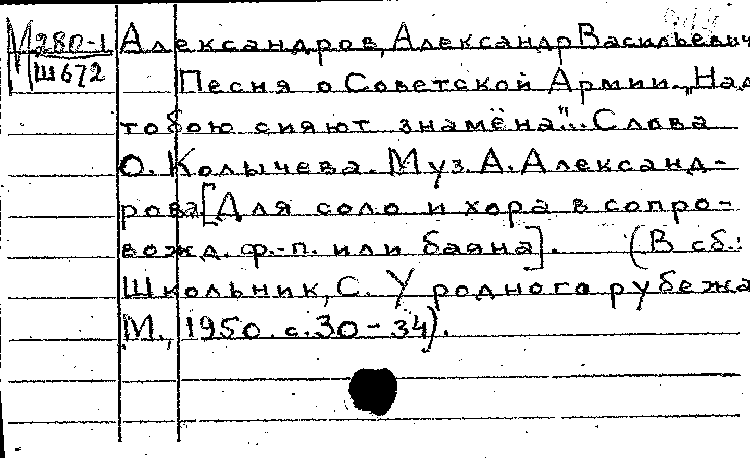 М280-1 Александров, Александр Васильевич
Ш672 Песня о Советской Армии. „Над
тобою сияют знамёна"... Слова
О. Колычева. Муз. А. Александ-
рова [Для соло и хора в сопро-
вожд. ф.-п. или баяна]. (В сб.:
Школьник, С. У родного рубежа
М., 1950. с. 30-34).